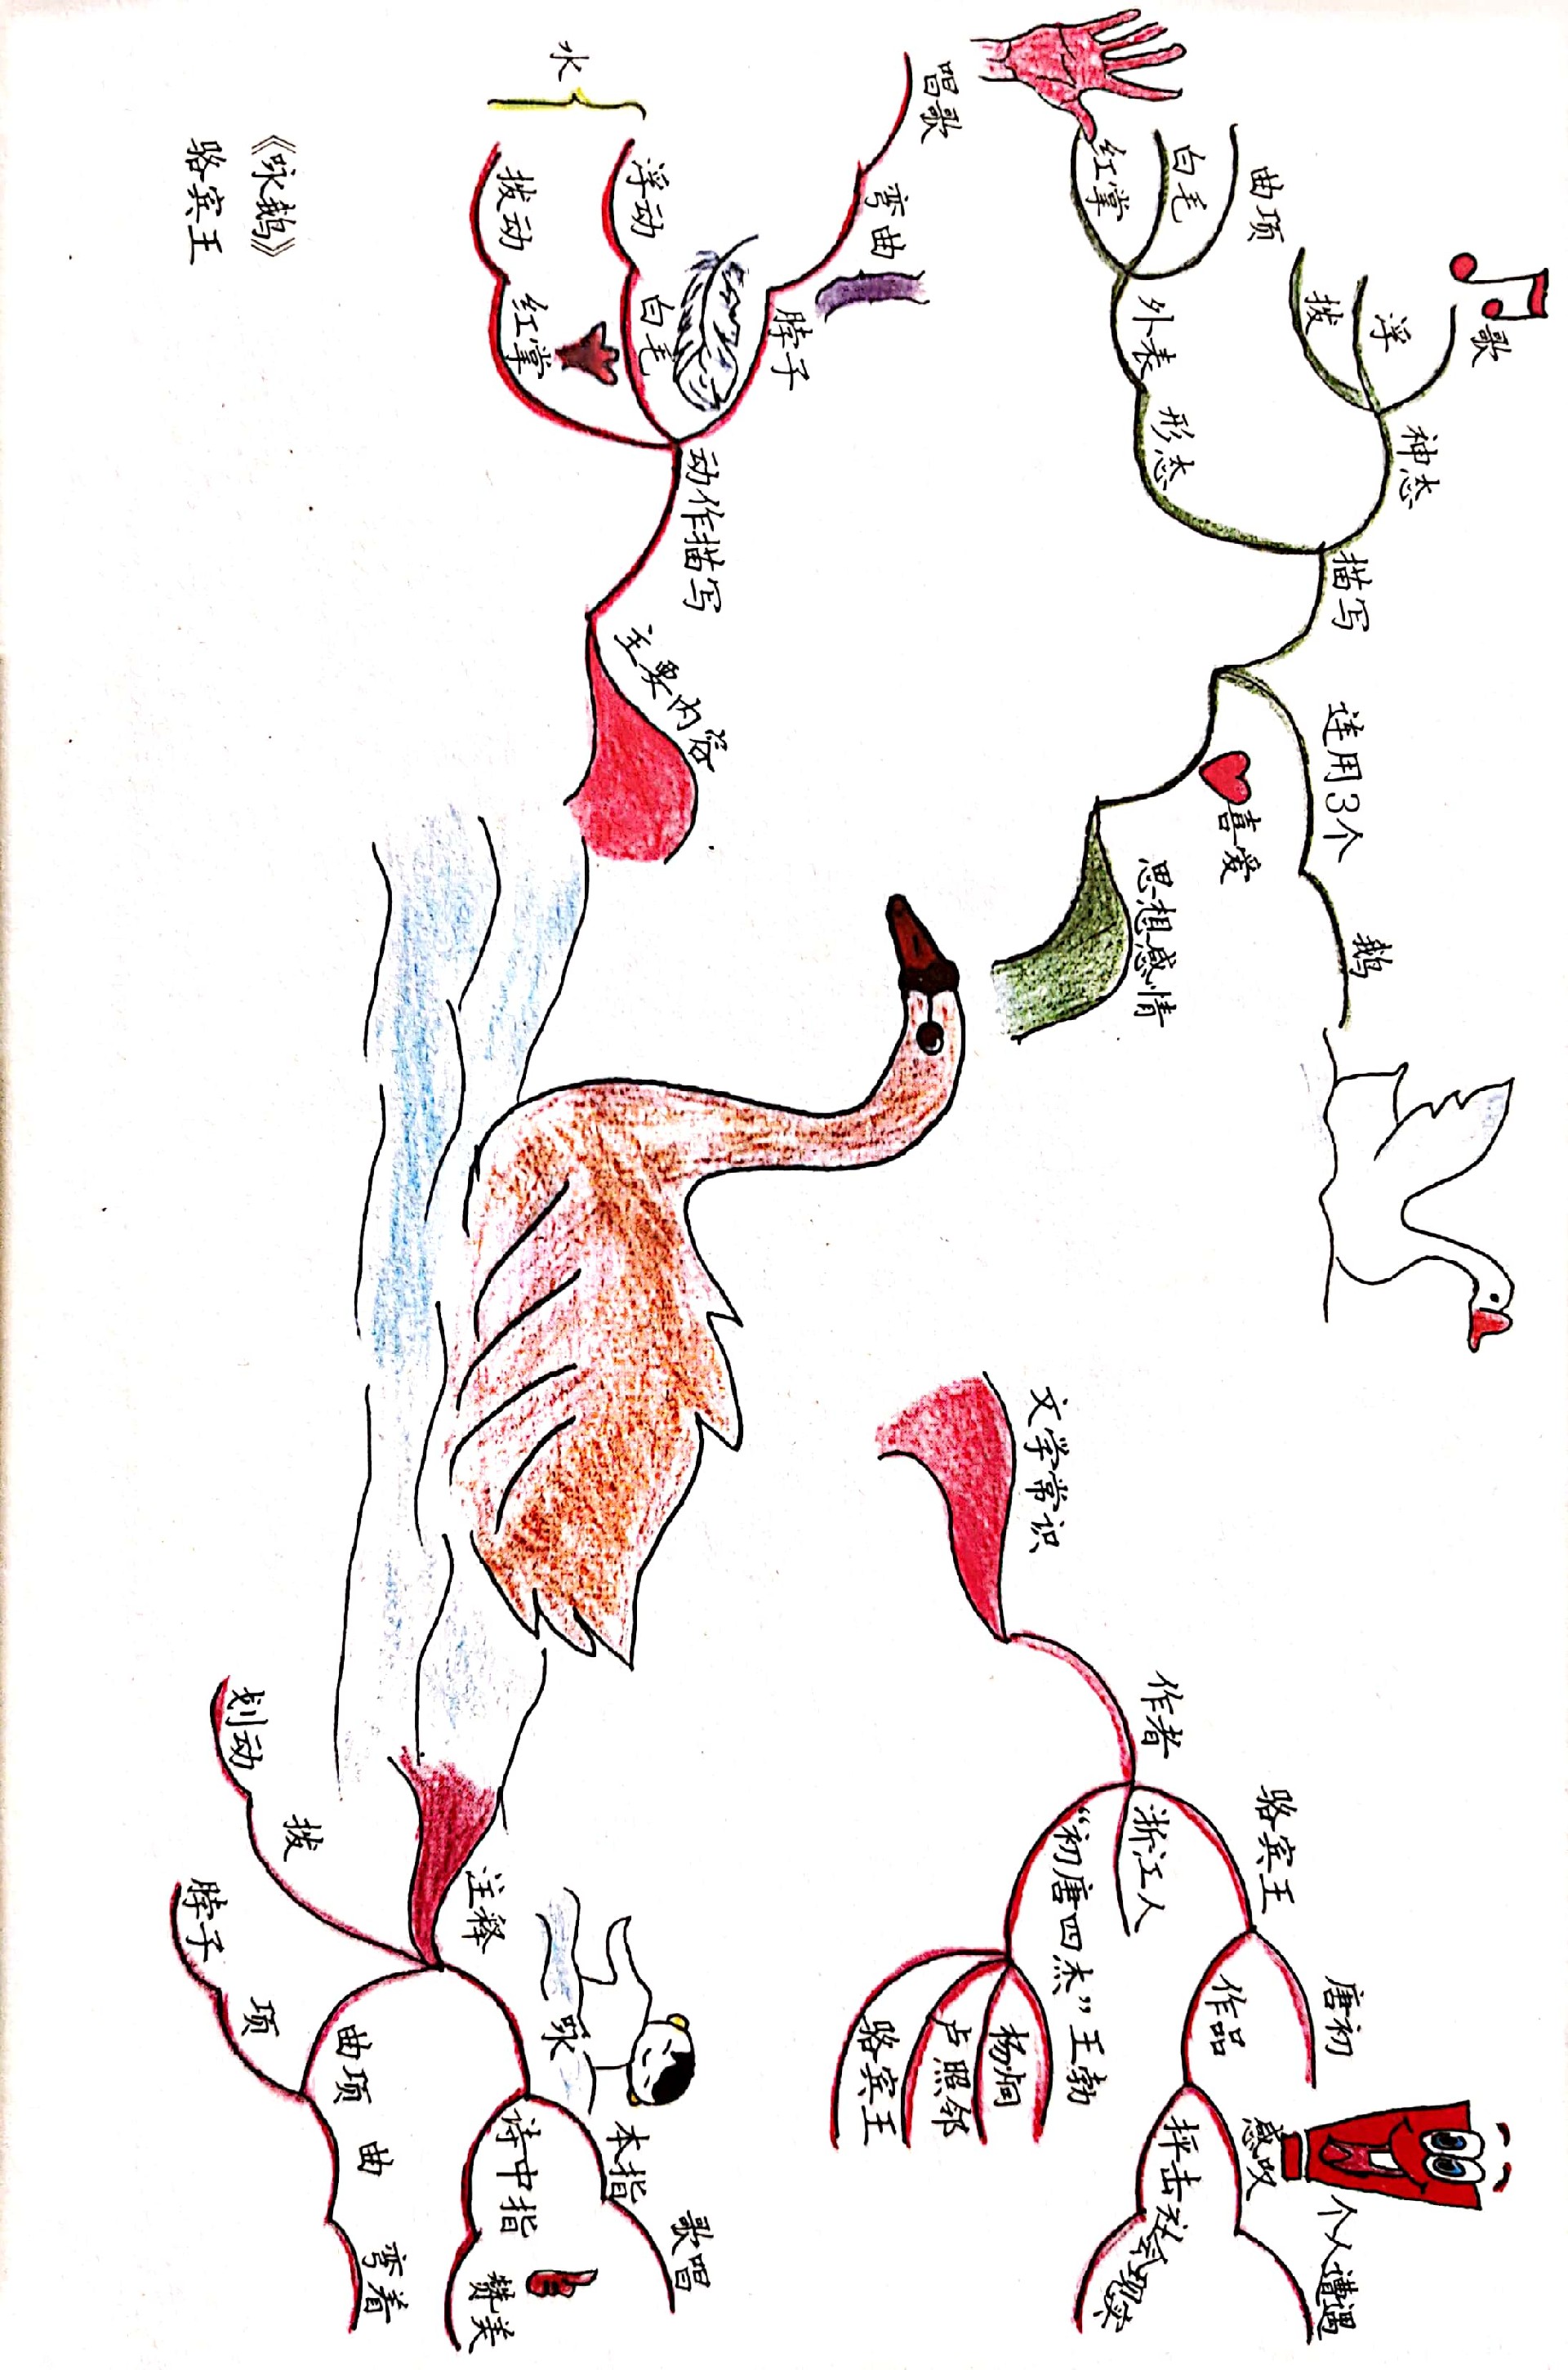 《咏鹅》
骆宾王
文学常识
作者
骆宾王
唐初
作品
感叹
个人遭遇
抨击
浙江人
“初唐四杰”
王勃
杨炯
卢照邻
骆宾王
注释
咏
本指
歌唱
诗中指
赞美
曲项
曲
弯着
项
脖子
拨
划动
主要内容
动作描写
脖子
弯曲
唱歌
白毛
浮动
红掌
拨动
水
思想感情
喜爱
连用3个
鹅
描写
神态
歌
浮
拨
形态
外表
曲项
白毛
红掌